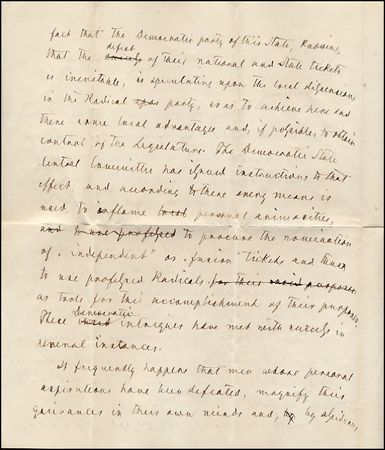 fact that the Democratic party of this State, knowing
that the defeat of their national and State tickets
is inevitable, is speculating upon the local dissensions
in the Radical party, so as to achieve here and
there some local advantages and, if possible, to obtain
control of the Legislature. The Democratic State
Central Committee has issued instructions to that
effect and according to them every means is
used to inflame local personal animosities,
and to use professed to procure the nomination
of "independent" or "fusion" tickets and thus
to use professed Radicals for their purposes
as tools for the accomplishment of their purposes.
These Democratic intrigues have met with success in
several instances.
It frequently happens that men whose personal
aspirations have been defeated, magnify their
grievances in their own minds and, by